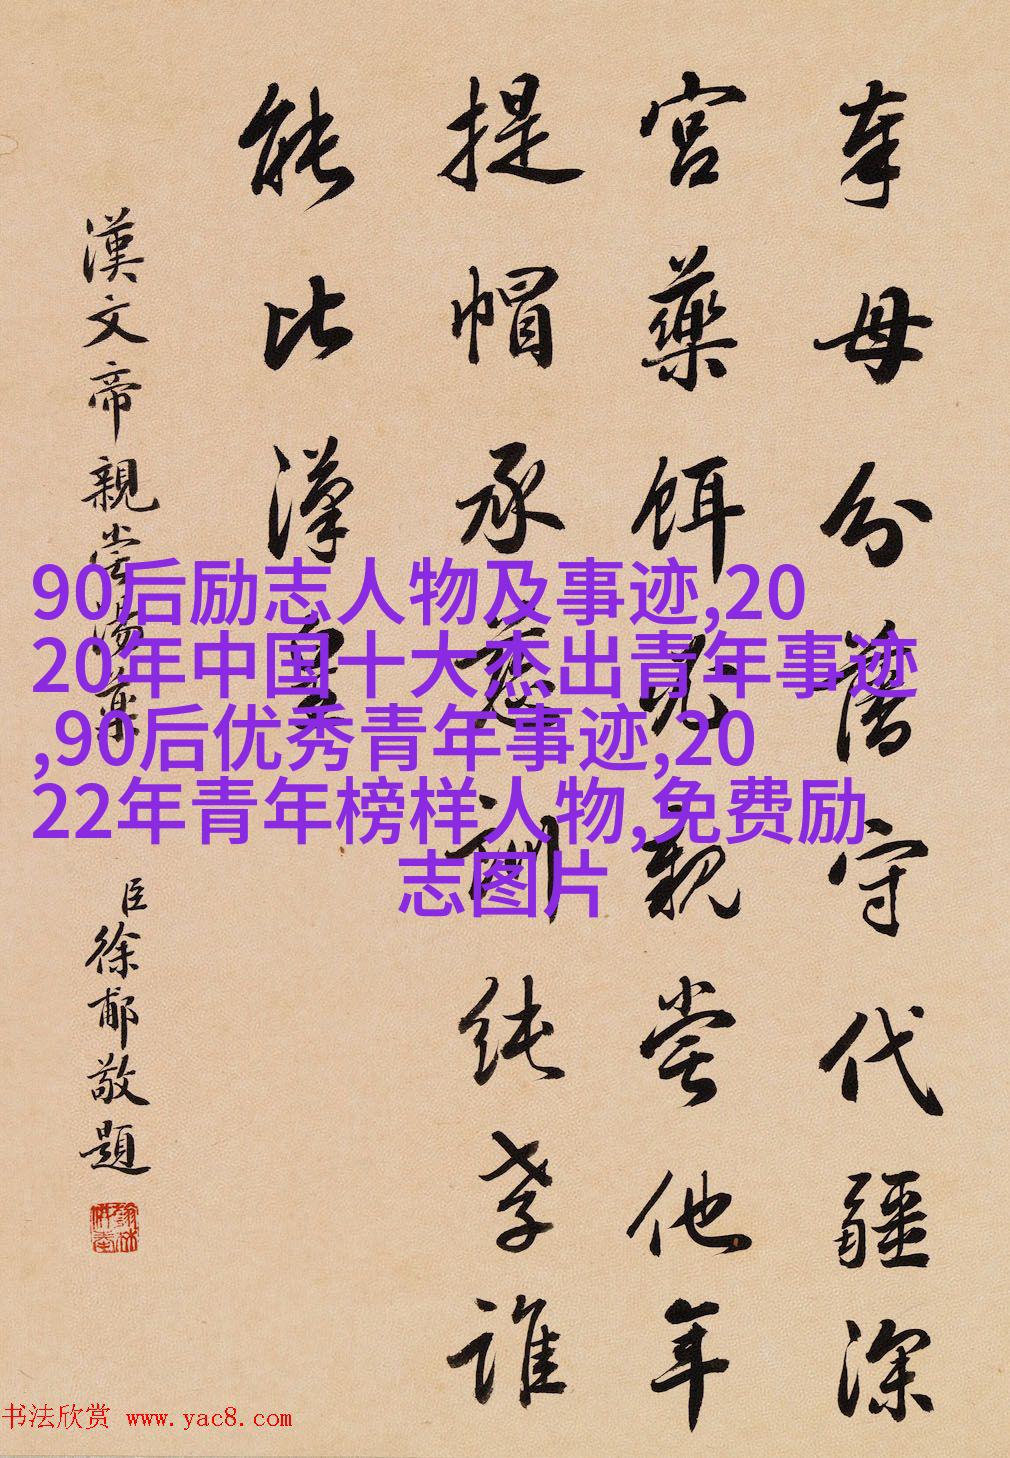 奉母分藩守代疆深
宮藥餌必親嘗他年
提帽承慈訓純孝誰
能比漢皇
漢文帝親嘗湯藥
臣徐郙敬題
90后励志人物及事迹,20
20年中国十大杰出青年事迹
,90后优秀青年事迹,20
22年青年榜样人物,免费励
志图片
书法欣赏 www.yac8.com